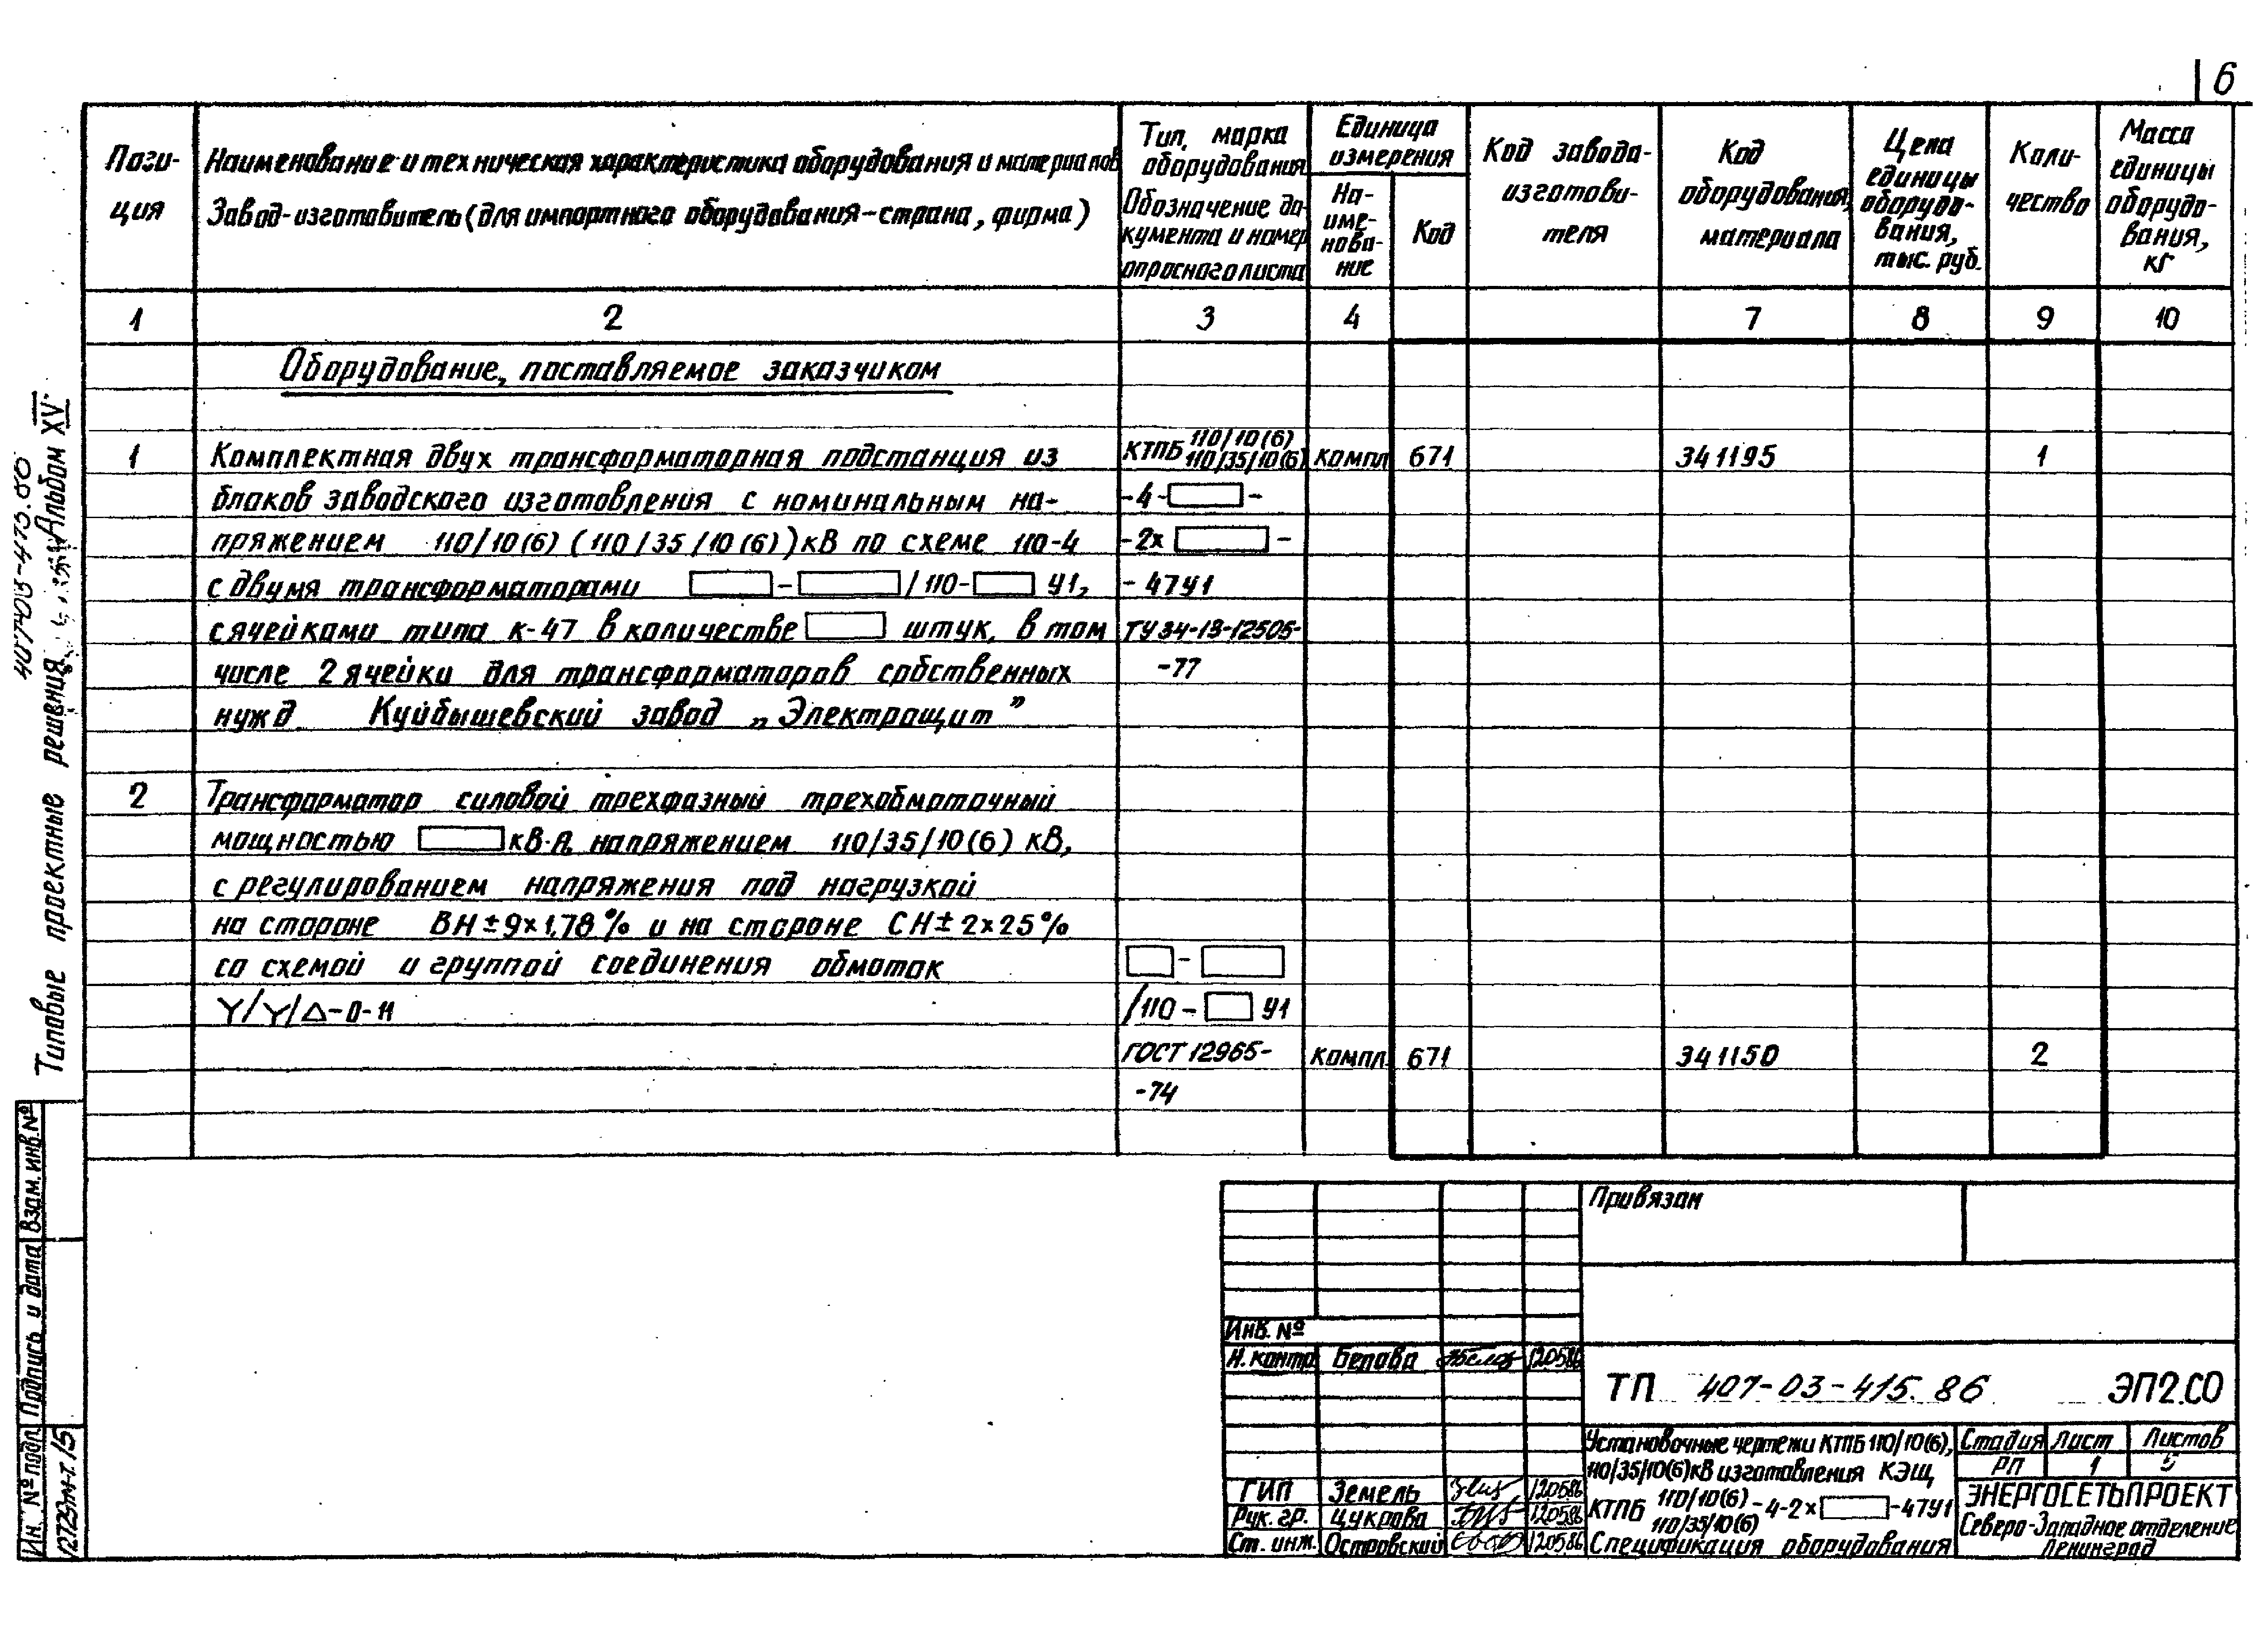 6
Пози-
ция
Наименование и техническая характеристика оборудования и материалов
Завод-изготовитель (для импортного оборудования-страна, фирма)
Тип, марка
оборудования
Обозначение до-
кумента и номер
опросного листа
Единица
измерения
На-
име-
нова-
ние
Код
Код завода-
изготови-
теля
Код
оборудования,
материала
Цена
единицы
оборудо-
вания,
тыс. руб.
Коли-
чество
Масса
единицы
оборудо-
вания,
кг
1 2 3 4 7 8 9 10
Оборудование, поставляемое заказчиком
1 Комплектная двух трансформаторная подстанция из КТПБ 110/10(6) 110/35/10(6) компл 671 341195 1
блоков заводского изготовления с номинальным на- -4-▭-
пряжением 110/10(6) (110/35/10(6)) кВ по схеме 110-4 -2х▭-
с двумя трансформаторами ▭-▭/110-▭ У1, -47У1
с ячейками типа К-47 в количестве ▭ штук, в том ТУ34-13-12505-
числе 2 ячейки для трансформаторов собственных -77
нужд Куйбышевский завод „Электрощит”
2 Трансформатор силовой трехфазный трехобмоточный
мощностью ▭ кВ·А, напряжением 110/35/10(6) кВ,
с регулированием напряжения под нагрузкой
на стороне ВН±9×1,78% и на стороне СН±2×25%
со схемой и группой соединения обмоток ▭-▭
Y/Y/△-0-11 /110-▭ У1
ГОСТ 12965- компл. 671 341150 2
-74
407-03-415.86
Альбом XV
Типовые проектные решения
Взам. инв. №
Подпись и дата
Ин. № подл.
12729тм-т.15
Привязан
Инв. №
Н. контр. Белова 120586
ТП 407-03-415.86 ЭП2.СО
Установочные чертежи КТПБ 110/10(6),
110/35/10(6) кВ изготовления КЭЩ
КТПБ 110/10(6) 110/35/10(6) -4-2×▭-47У1
Спецификация оборудования
Стадия Лист Листов
РП 1 5
ГИП Земель 120586
Рук. гр. Цукрова 120586
Ст. инж. Островский 120586
ЭНЕРГОСЕТЬПРОЕКТ
Северо-Западное отделение
Ленинград